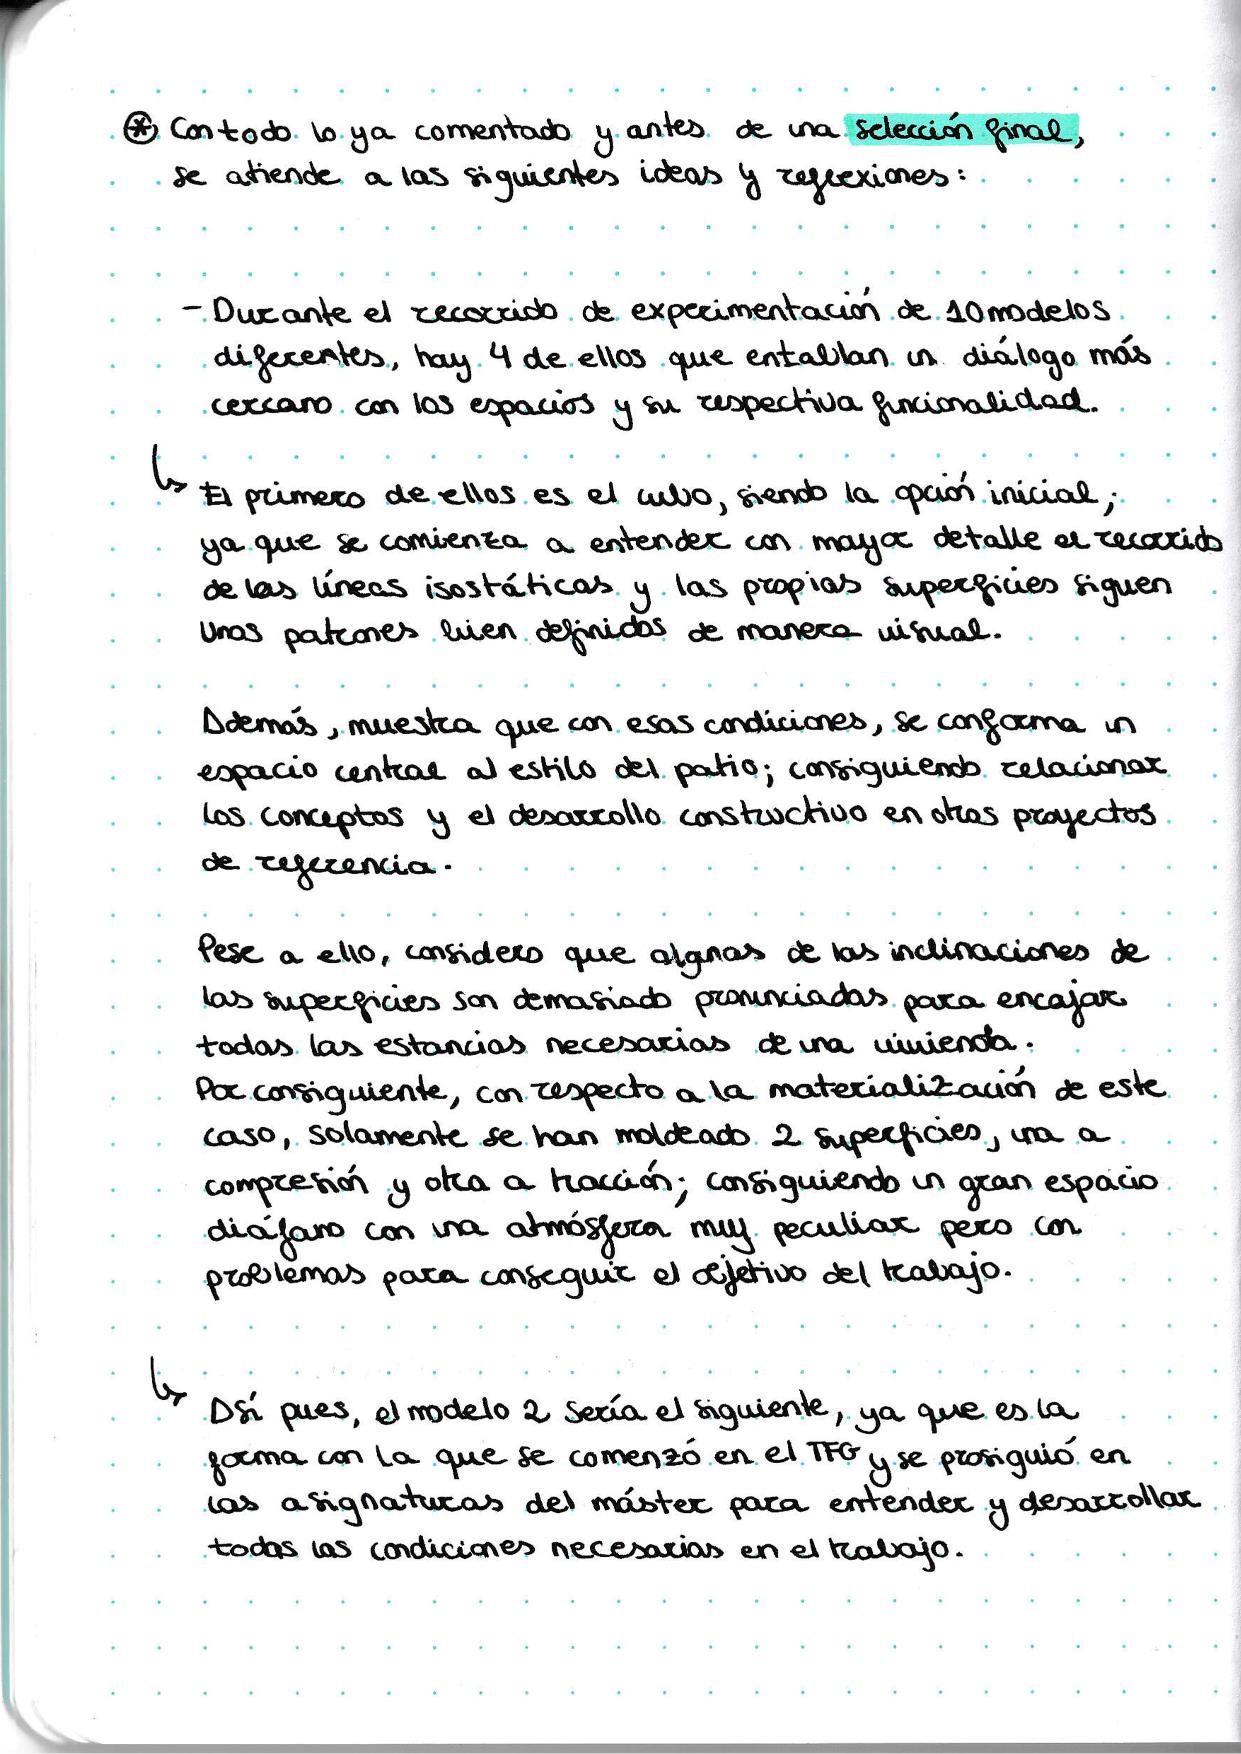 ⊛ Con todo lo ya comentado y antes de una selección final,
se atiende a las siguientes ideas y reflexiones:
- Durante el recorrido de experimentación de 10 modelos
diferentes, hay 4 de ellos que entablan un diálogo más
cercano con los espacios y su respectiva funcionalidad.
↳ El primero de ellos es el cubo, siendo la opción inicial;
ya que se comienza a entender con mayor detalle el recorrido
de las líneas isostáticas y las propias superficies siguen
unos patrones bien definidos de manera visual.
Además, muestra que con esas condiciones, se conforma un
espacio central al estilo del patio; consiguiendo relacionar
los conceptos y el desarrollo constructivo en otros proyectos
de referencia.
Pese a ello, considero que algunas de las inclinaciones de
las superficies son demasiado pronunciadas para encajar
todas las estancias necesarias de una vivienda.
Por consiguiente, con respecto a la materialización de este
caso, solamente se han moldeado 2 superficies, una a
compresión y otra a tracción; consiguiendo un gran espacio
diáfano con una atmósfera muy peculiar pero con
problemas para conseguir el objetivo del trabajo.
↳ Así pues, el modelo 2 sería el siguiente, ya que es la
forma con la que se comenzó en el TFG y se prosiguió en
las asignaturas del máster para entender y desarrollar
todas las condiciones necesarias en el trabajo.